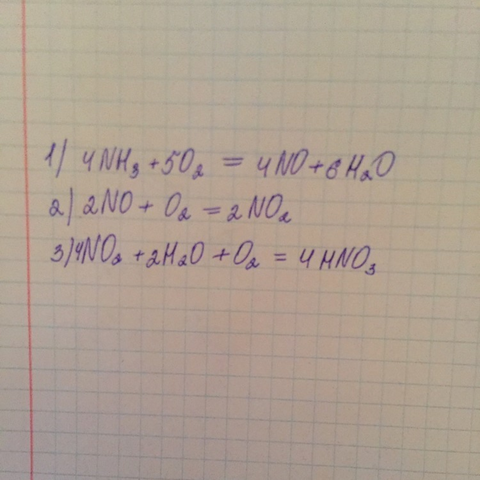 1) 4NH₃ + 5O₂ = 4NO + 6H₂O
2) 2NO + O₂ = 2NO₂
3) 4NO₂ + 2H₂O + O₂ = 4HNO₃